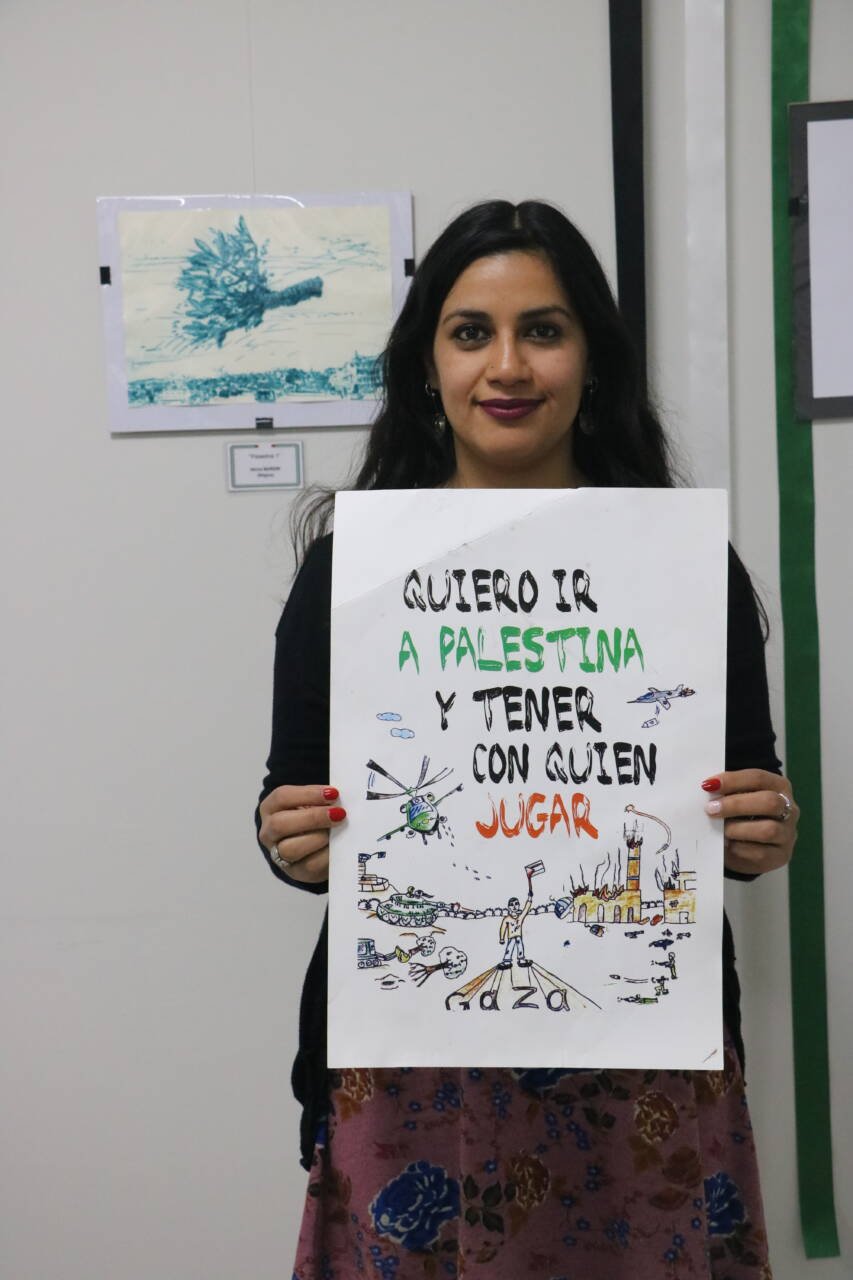 "Palestina 1"
QUIERO IR
A PALESTINA
Y TENER
CON QUIEN
JUGAR
GaZa